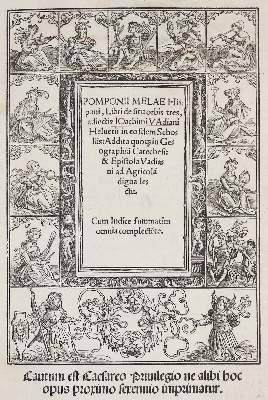 POMPONII MELAE His
pani, Libri de situ orbis tres,
adiectis IOachimi VAdiani
Heluetii in eosdem Scho
liis: Addita quoque in Geo
graphiam Catechesi:
& Epistola Vadia
ni ad Agricolã
digna lec
tu.
Cum Indice summatim
omnia complectẽte.
Cautum est Caesareo Priuilegio ne alibi hoc
opus proximo sexennio imprimatur.